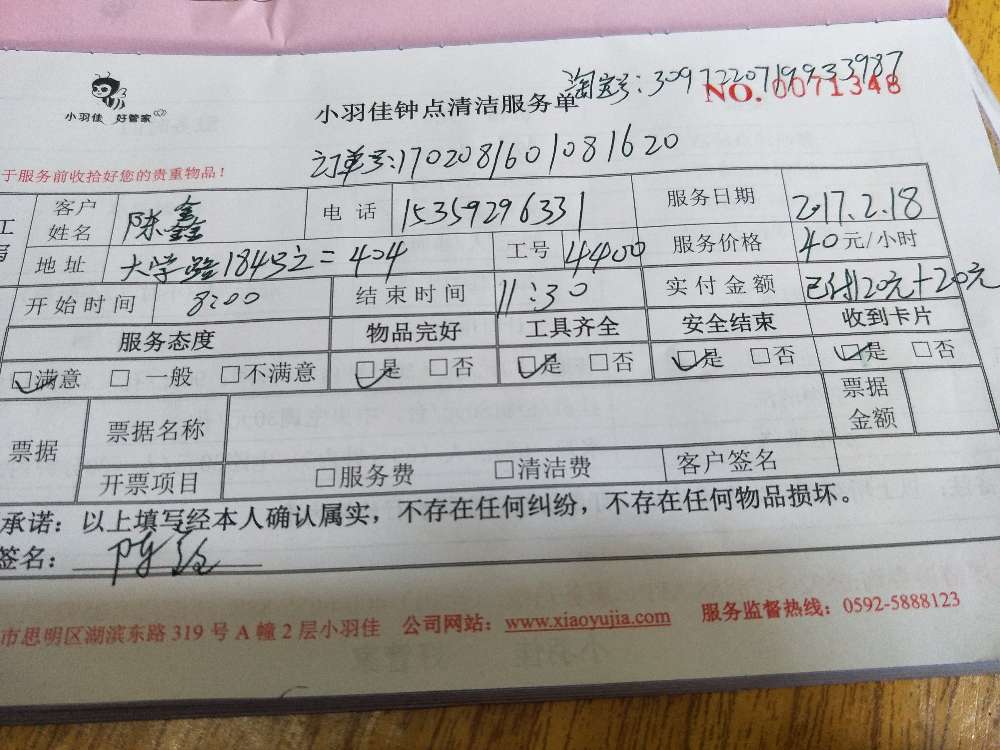 淘宝号:3097220719933987
小羽佳 好管家
小羽佳钟点清洁服务单
NO. 0071348
订单号:1702081601081620
于服务前收拾好您的贵重物品!
工
客户姓名 陈鑫 电话 15359296331 服务日期 2017.2.18
地址 大学路184号之二404 工号 4400 服务价格 40元/小时
开始时间 8:00 结束时间 11:30 实付金额 已付120元+20元
服务态度 物品完好 工具齐全 安全结束 收到卡片
☑满意 □一般 □不满意 ☑是 □否 ☑是 □否 ☑是 □否 ☑是 □否
票据 票据名称 票据金额
开票项目 □服务费 □清洁费 客户签名
承诺:以上填写经本人确认属实,不存在任何纠纷,不存在任何物品损坏。
签名:
市思明区湖滨东路319号A幢2层小羽佳 公司网站:www.xiaoyujia.com 服务监督热线:0592-5888123